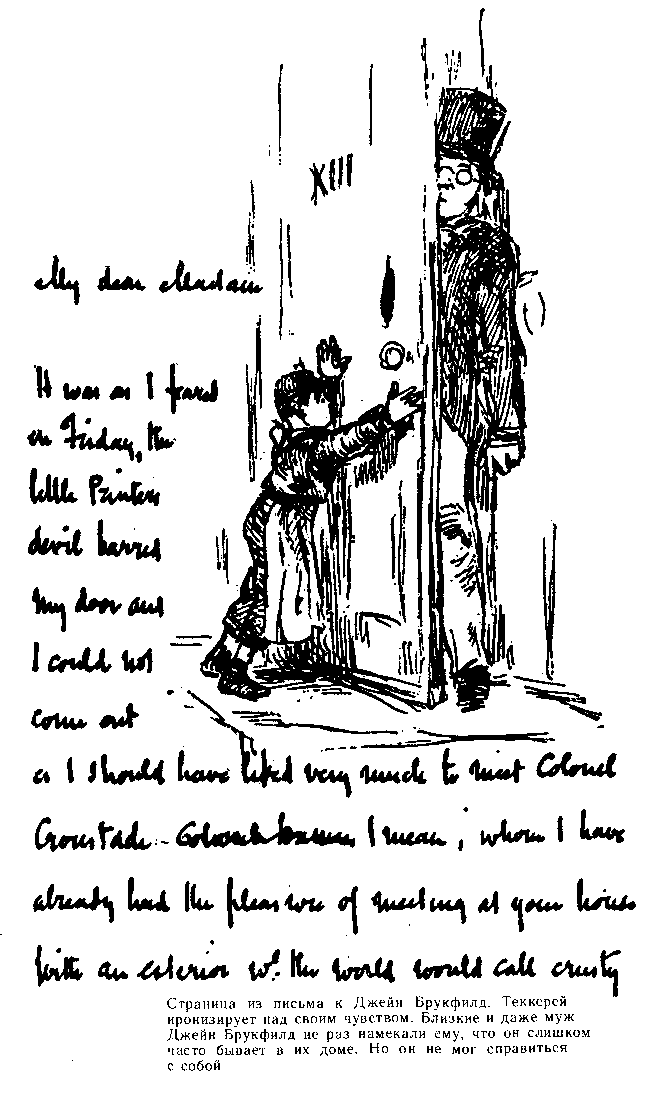 XIII
My dear Madam
It was as I feared
on Friday, the
little Printers
devil barred
my door and
I could not
come out
as I should have liked very much to meet Colonel
Croustade - I mean, whom I have
already had the pleasure of meeting at your house
with an exterior wh. the world would call crusty
Страница из письма к Джейн Брукфилд. Теккерей
иронизирует над своим чувством. Близкие и даже муж
Джейн Брукфилд не раз намекали ему, что он слишком
часто бывает в их доме. Но он не мог справиться
с собой